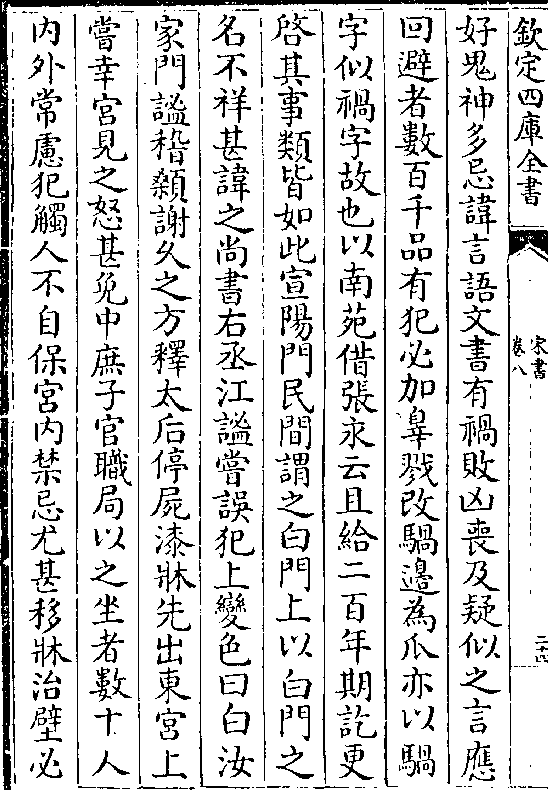 欽定四庫全書
宋書
卷八
二十四
好鬼神多忌諱言語文書有禍敗凶喪及疑似之言應
回避者數百千品有犯必加辠戮改騧邊為瓜亦以騧
字似禍字故也以南苑借張永云且給二百年期訖更
啓其事類皆如此宣陽門民間謂之白門上以白門之
名不祥甚諱之尚書右丞江謐嘗誤犯上變色曰白汝
家門謐稽顙謝久之方釋太后停屍漆牀先出東宮上
嘗幸宮見之怒甚免中庶子官職局以之坐者數十人
内外常慮犯觸人不自保宮内禁忌尤甚移牀治壁必